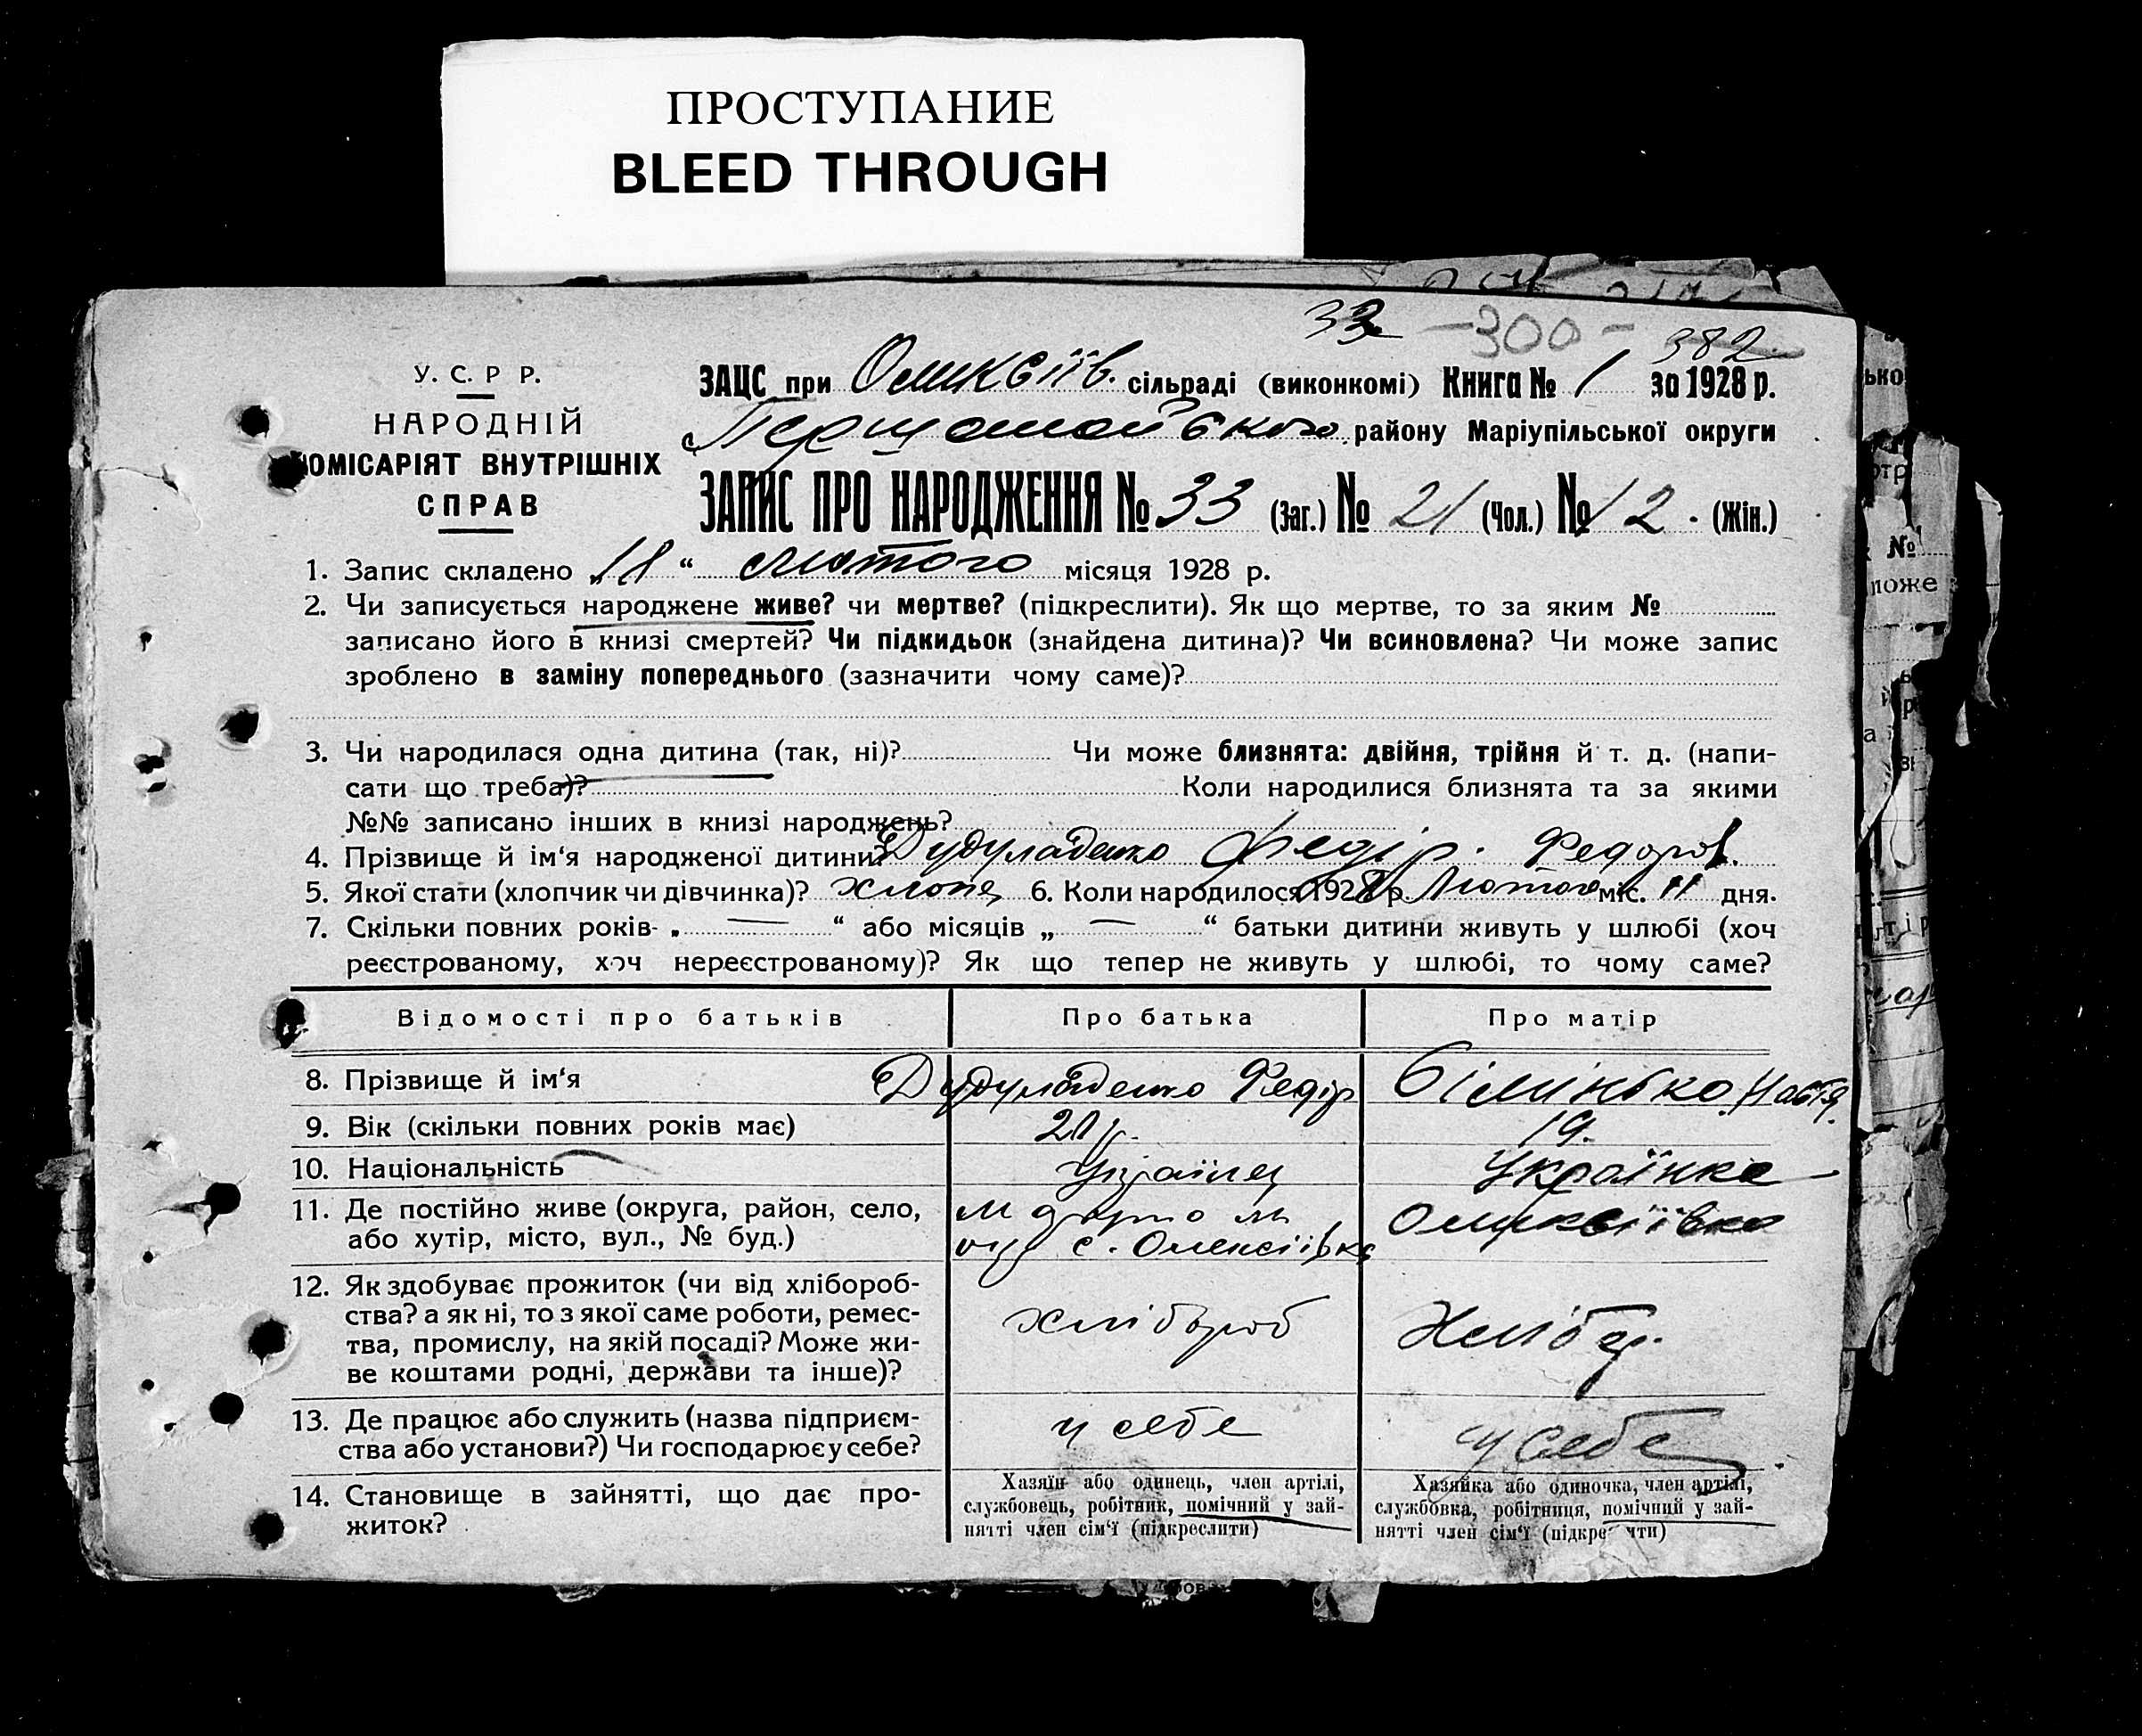 ПРОСТУПАНИЕ
BLEED THROUGH
33 -300- 382
У. С. Р Р.
НАРОДНІЙ
КОМІСАРІЯТ ВНУТРІШНІХ
СПРАВ
ЗАЦС при Оликсіїв. сільраді (виконкомі) Книга № 1 за 1928 р.
Першомайського району Маріупільської округи
ЗАПИС ПРО НАРОДЖЕННЯ № 33 (Заг.) № 21 (Чол.) № 12. (Жін.)
1. Запис складено „18“ лютого місяця 1928 р.
2. Чи записується народжене живе? чи мертве? (підкреслити). Як що мертве, то за яким №
записано його в книзі смертей? Чи підкидьок (знайдена дитина)? Чи всиновлена? Чи може запис
зроблено в заміну попереднього (зазначити чому саме)?
3. Чи народилася одна дитина (так, ні)? Чи може близнята: двійня, трійня й т. д. (напи-
сати що треба)? Коли народилися близнята та за якими
№№ записано інших в книзі народжень?
4. Прізвище й ім‘я народженої дитини? Дудуладенко Федір. Федоров.
5. Якої стати (хлопчик чи дівчинка)? хлопец 6. Коли народилося 1928 р. Лютого міс. 11 дня.
7. Скільки повних років- „ — “ або місяців „ — “ батьки дитини живуть у шлюбі (хоч
реєстрованому, хоч нереєстрованому)? Як що тепер не живуть у шлюбі, то чому саме?
Відомості про батьків Про батька Про матір
8. Прізвище й ім‘я Дудуладенко Федір Настя
9. Вік (скільки повних років має) 19.
10. Національність Українец Українка
11. Де постійно живе (округа, район, село,
або хутір, місто, вул., № буд.)
с. Олексіївка Оликсіївка
12. Як здобуває прожиток (чи від хлібороб-
ства? а як ні, то з якої саме роботи, ремес-
тва, промислу, на якій посаді? Може жи-
ве коштами родні, держави та інше)?
хлібороб Хлібор.
13. Де працює або служить (назва підприєм-
ства або установи?) Чи господарює у себе?
у себе у себе
14. Становище в зайнятті, що дає про-
житок?
Хазяїн або одинець, член артілі,
службовець, робітник, помічний у зай-
нятті член сім‘ї (підкреслити)
Хазяйка або одиночка, член артілі,
службовка, робітниця, помічний у зай-
нятті член сім‘ї (підкре ити)